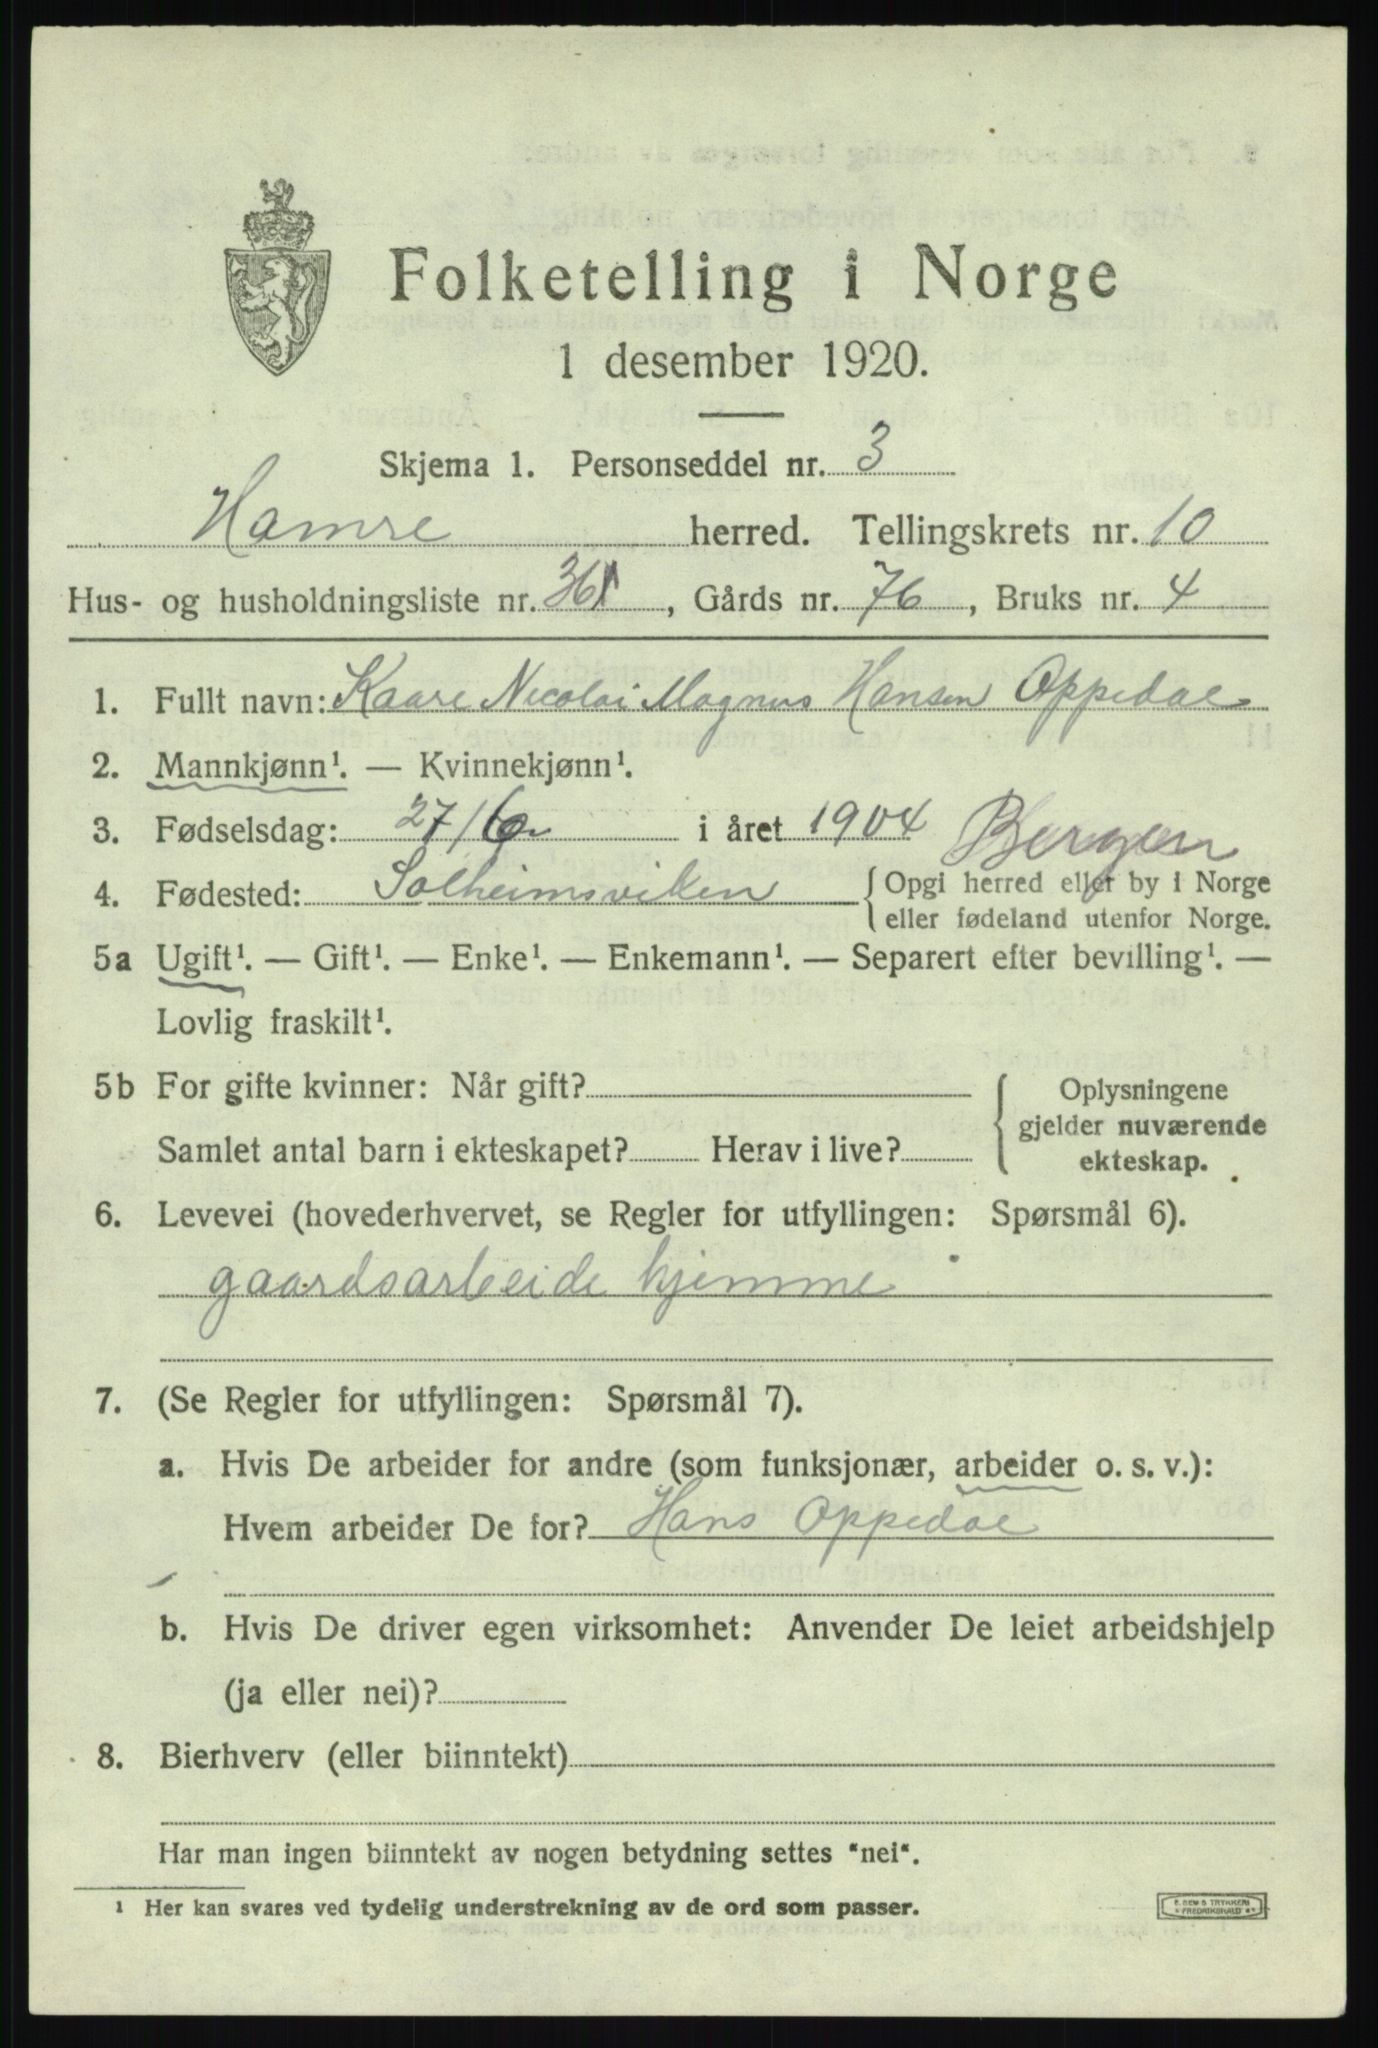 Folketelling i Norge
1 desember 1920.
Skjema 1. Personseddel nr. 3
Hamre herred. Tellingskrets nr. 10
Hus- og husholdningsliste nr. 361, Gårds nr. 76, Bruks nr. 4
1. Fullt navn: Kaare Nicolai Magnus Hansen Oppedal
2. Mannkjønn¹. — Kvinnekjønn¹.
3. Fødselsdag: 27/6 i året 1904 Bergen
4. Fødested: Solheimsviken { Opgi herred eller by i Norge
eller fødeland utenfor Norge.
5a Ugift¹. — Gift¹. — Enke¹. — Enkemann¹. — Separert efter bevilling¹. —
Lovlig fraskilt¹.
5b For gifte kvinner: Når gift?
Samlet antal barn i ekteskapet? Herav i live?
Oplysningene
gjelder nuværende
ekteskap.
6. Levevei (hovederhvervet, se Regler for utfyllingen: Spørsmål 6).
gaardsarbeide hjemme
7. (Se Regler for utfyllingen: Spørsmål 7).
a. Hvis De arbeider for andre (som funksjonær, arbeider o. s. v.):
Hvem arbeider De for? Hans Oppedal
b. Hvis De driver egen virksomhet: Anvender De leiet arbeidshjelp
(ja eller nei)?
8. Bierhverv (eller biinntekt)
Har man ingen biinntekt av nogen betydning settes "nei".
¹ Her kan svares ved tydelig understrekning av de ord som passer.